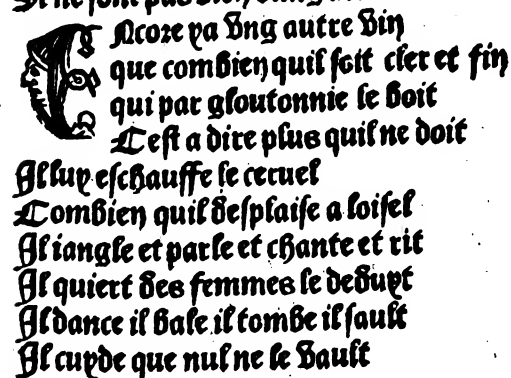 Encore ya vng autre vin
que combien quil soit cler et fin
qui par gloutonnie le boit
Cest a dire plus quil ne doit
Il luy eschauffe le ceruel
Combien quil desplaise a loisel
Il iangle et parle et chante et rit
Il quiert des femmes le deduyt
Il dance il bale il tombe il sault
Il cuyde que nul ne le vault